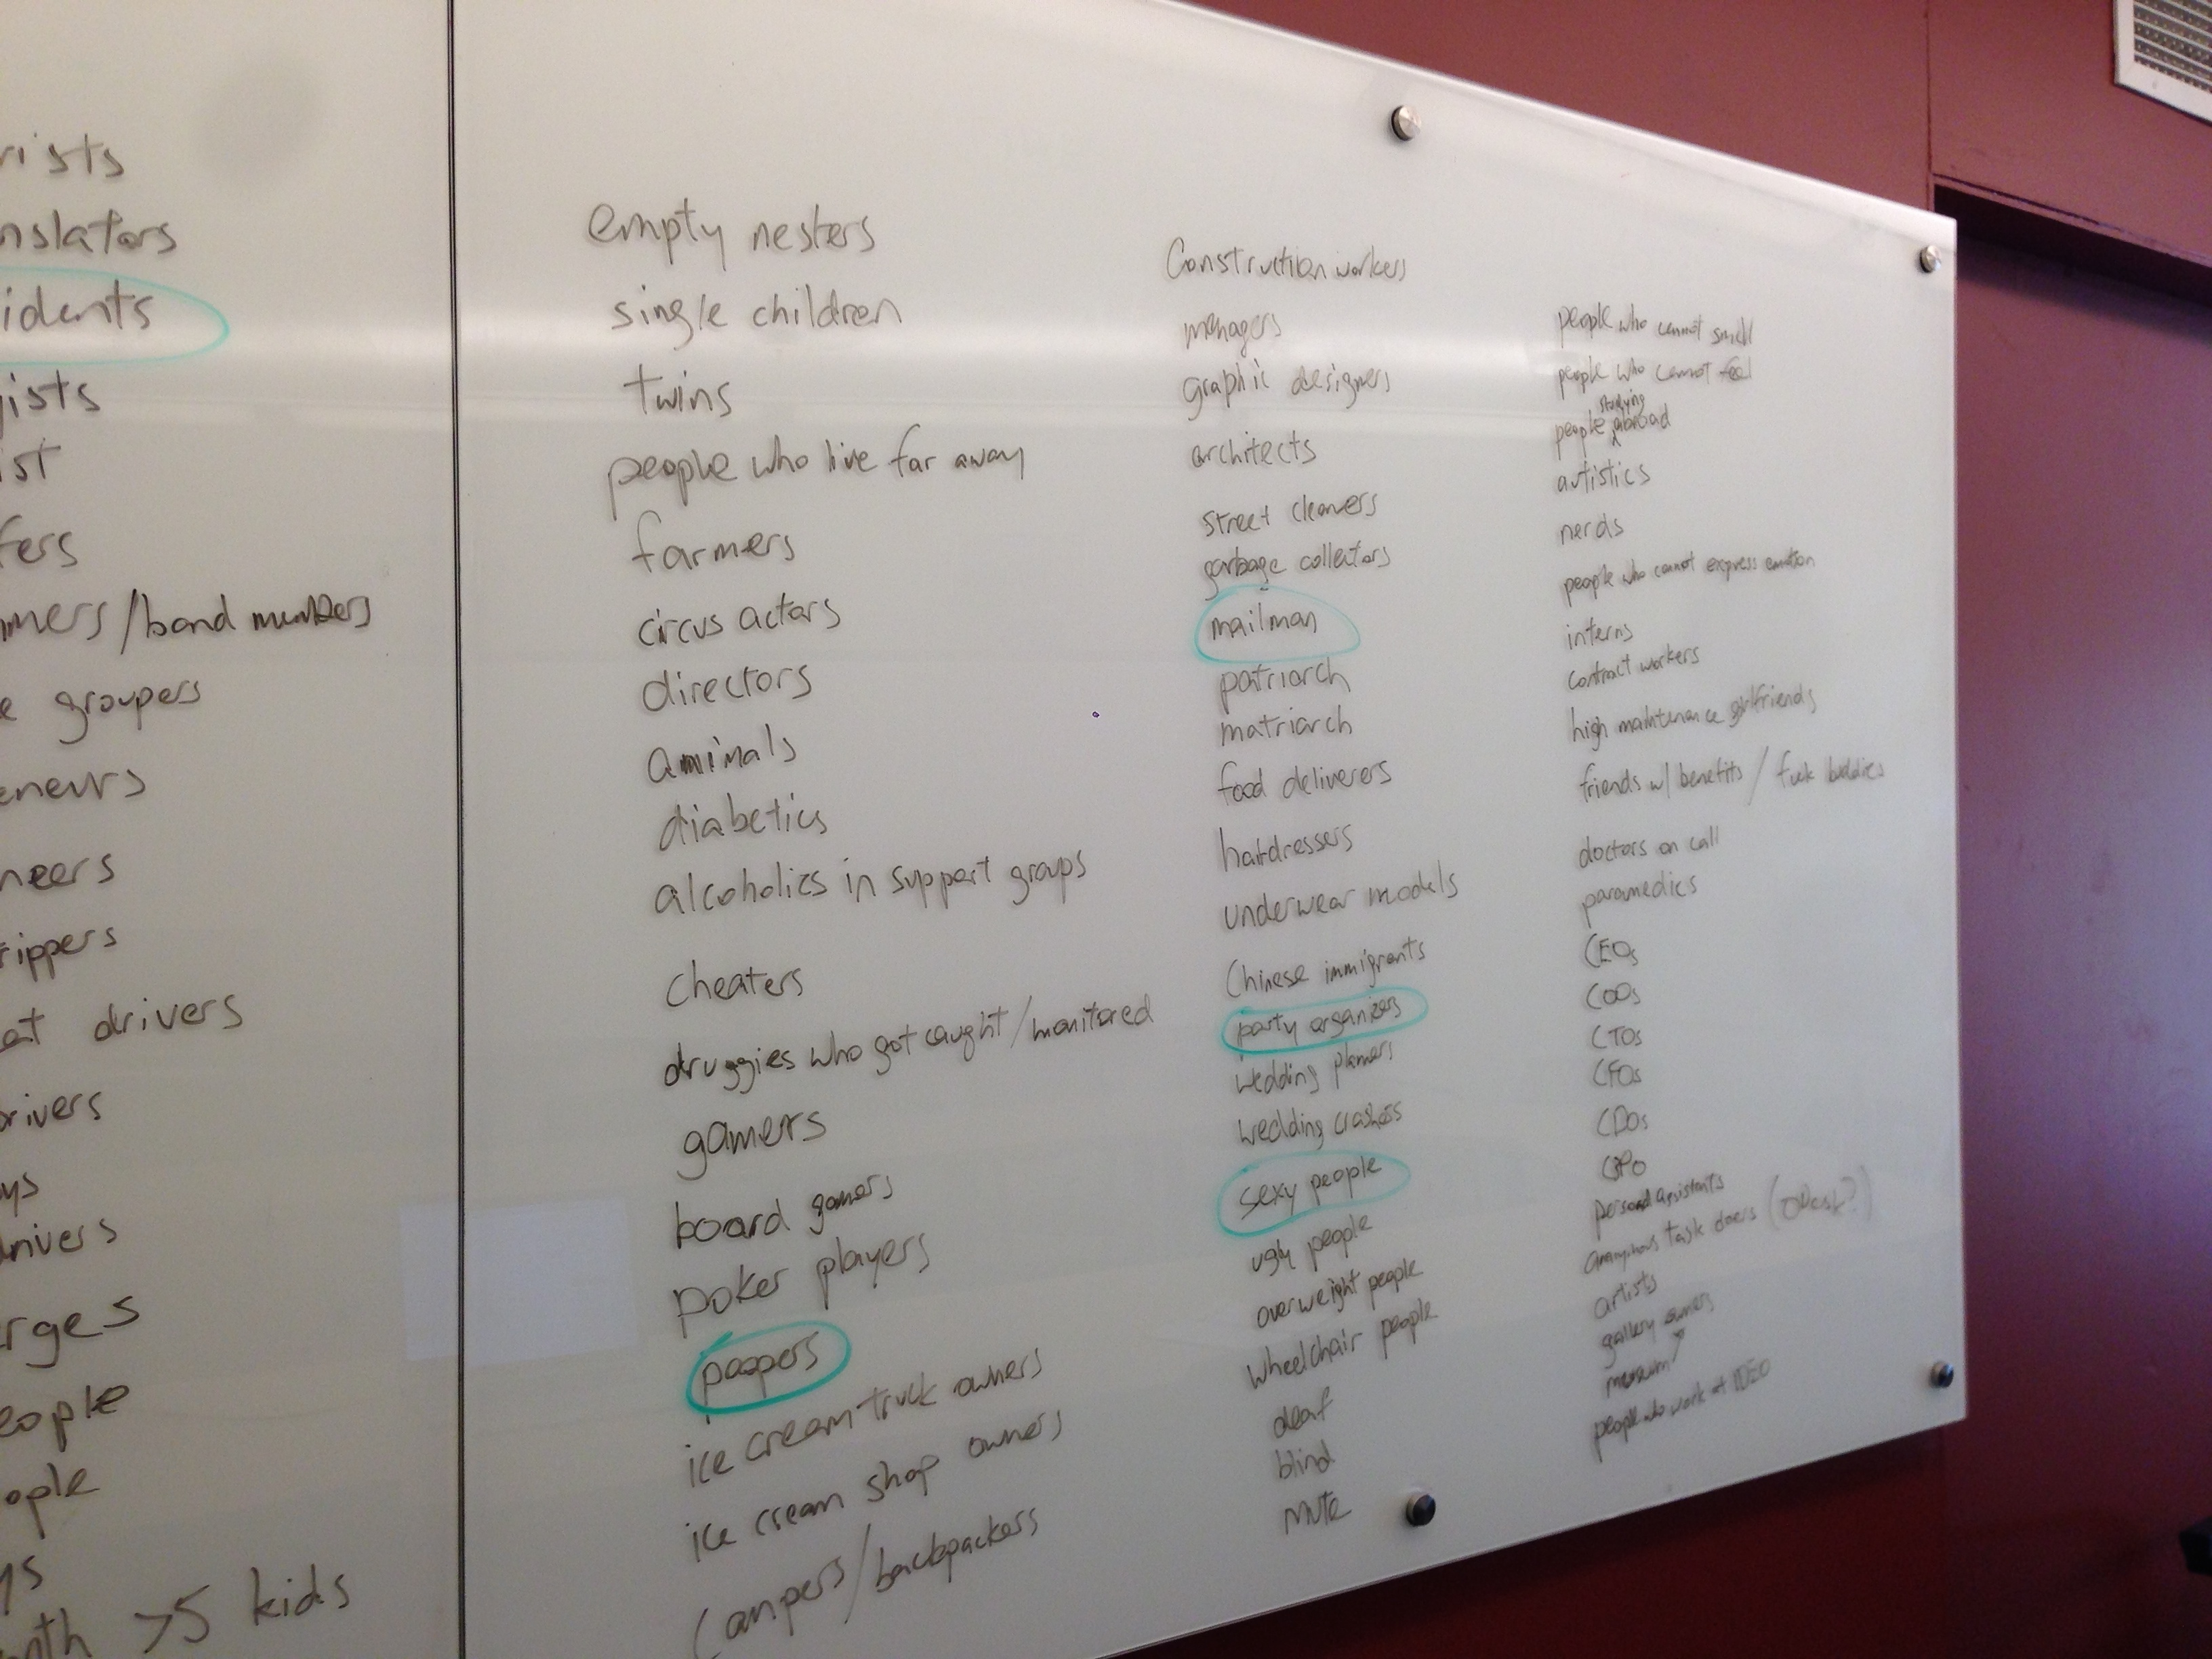 rists
nslators
idents
ists
ist
fers
mmers/band members
e groupers
eneurs
neers
rippers
at drivers
rivers
ys
drivers
rges
eople
ople
ys
>5 kids
empty nesters
single children
twins
people who live far away
farmers
circus actors
directors
aminals
diabetics
alcoholics in support groups
cheaters
druggies who got caught/monitored
gamers
board gamers
poker players
poopers
ice cream truck owners
ice cream shop owners
campers/backpackers
Construction workers
managers
graphic designers
architects
street cleaners
garbage collectors
mailman
patriarch
matriarch
food deliverers
hairdressers
underwear models
Chinese immigrants
party organizers
wedding planners
wedding crashers
sexy people
ugly people
overweight people
wheelchair people
deaf
blind
mute
people who cannot smell
people who cannot feel
people studying abroad
autistics
nerds
people who cannot express emotion
interns
contract workers
high maintenance girlfriends
friends w/ benefits / fuck buddies
doctors on call
paramedics
CEOs
COOs
CTOs
CFOs
CDOs
CPO
personal assistants
anonymous task doers (oDesk?)
artists
gallery owners
museum
people who work at IDEO